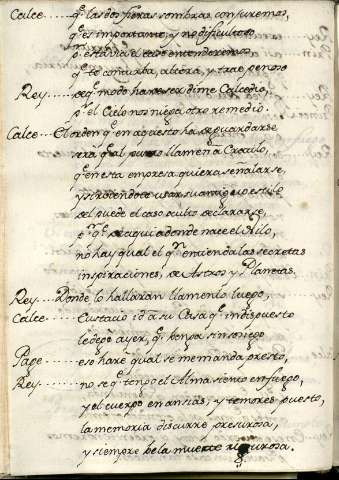 Calce... q̃ las dos fieras sombras conjuremos,
q̃ es importante, y no dificultoso
p.ª
q̃ te conturba, altera, y trae penoso
Rey... de q̃ modo ha de ser dime Calcedio,
p.s el Cielo nos niega otro remedio.
Calce... El orden q̃ en aquesto ha de guardarse
será q̃ al punto llamen a
q̃ en esta empresa quiera señalarse,
y sirviendose usar su antiguo estilo
del puede el caso oculto declararse,
q̃ de aqui a donde nace el Nilo,
no hay qual el q.n entienda las secretas
inspiraciones, de Astros y Planetas.
Rey... Donde lo hallaran llamenlo luego,
Calce... Eustacio id a su Casa q̃ indispuesto
le dejé ayer, q̃ benga sin sosiego
Page... eso haré qual se me manda presto,
Rey... no se q̃ tengo el Alma siento en fuego,
y el cuerpo en ansias, y temores puesto,
la memoria discurre presurosa,
y siempre be la muerte rigurosa.